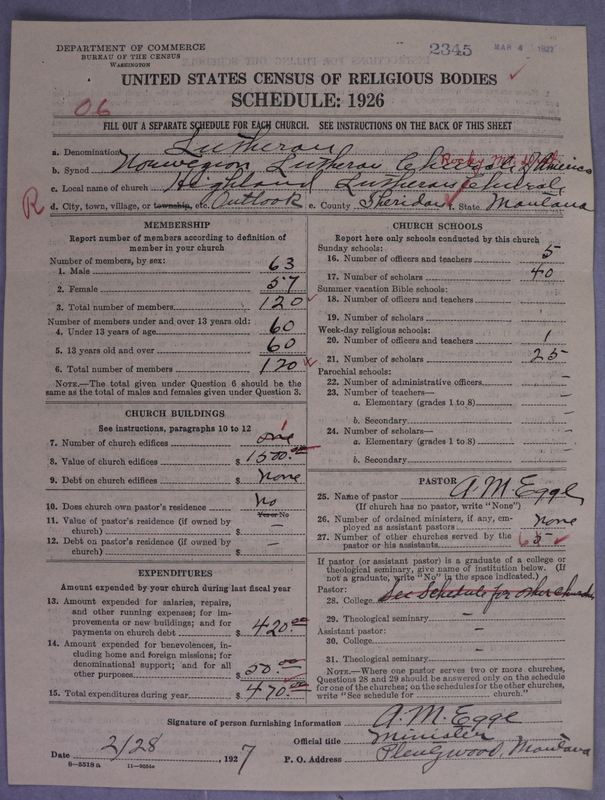 DEPARTMENT OF COMMERCE
BUREAU OF THE CENSUS
WASHINGTON
2345 MAR 4 1927
UNITED STATES CENSUS OF RELIGIOUS BODIES
SCHEDULE: 1926
06
FILL OUT A SEPARATE SCHEDULE FOR EACH CHURCH. SEE INSTRUCTIONS ON THE BACK OF THIS SHEET
a. Denomination Lutheran
b. Synod Norwegian Lutheran Church of America
Rocky Mt.
c. Local name of church Highland Lutheran Church
R
d. City, town, village, or township, etc. Outlook e. County Sheridan f. State Montana
MEMBERSHIP
Report number of members according to definition of
member in your church
Number of members, by sex:
1. Male 63
2. Female 57
3. Total number of members 120
Number of members under and over 13 years old:
4. Under 13 years of age 60
5. 13 years old and over 60
6. Total number of members 120
NOTE.—The total given under Question 6 should be the
same as the total of males and females given under Question 3.
CHURCH BUILDINGS
See instructions, paragraphs 10 to 12
7. Number of church edifices one 1
8. Value of church edifices $ 1500.00
9. Debt on church edifices $ None
10. Does church own pastor's residence No
Yes or No
11. Value of pastor's residence (if owned by
church) $ —
12. Debt on pastor's residence (if owned by
church) $ —
EXPENDITURES
Amount expended by your church during last fiscal year
13. Amount expended for salaries, repairs,
and other running expenses; for im-
provements or new buildings; and for
payments on church debt $ 420.00
14. Amount expended for benevolences, in-
cluding home and foreign missions; for
denominational support; and for all
other purposes $ 50.00
15. Total expenditures during year $ 470.00
CHURCH SCHOOLS
Report here only schools conducted by this church
Sunday schools:
16. Number of officers and teachers 5
17. Number of scholars 40
Summer vacation Bible schools:
18. Number of officers and teachers —
19. Number of scholars —
Week-day religious schools:
20. Number of officers and teachers 1
21. Number of scholars 25
Parochial schools:
22. Number of administrative officers —
23. Number of teachers—
a. Elementary (grades 1 to 8) —
b. Secondary —
24. Number of scholars—
a. Elementary (grades 1 to 8) —
b. Secondary —
PASTOR
25. Name of pastor A. M. Egge
(If church has no pastor, write "None")
26. Number of ordained ministers, if any, em-
ployed as assistant pastors none
27. Number of other churches served by the
pastor or his assistants 5
If pastor (or assistant pastor) is a graduate of a college or
theological seminary, give name of institution below. (If
not a graduate, write "No" in the space indicated.)
Pastor:
28. College See Schedule for other churches
29. Theological seminary —
Assistant pastor:
30. College —
31. Theological seminary —
NOTE.—Where one pastor serves two or more churches,
Questions 28 and 29 should be answered only on the schedule
for one of the churches; on schedules for the other churches,
write "See schedule for church."
Signature of person furnishing information A. M. Egge
Official title Minister
Date 2/28, 1927 P. O. Address Plentywood, Montana
8—5518a 11—9034